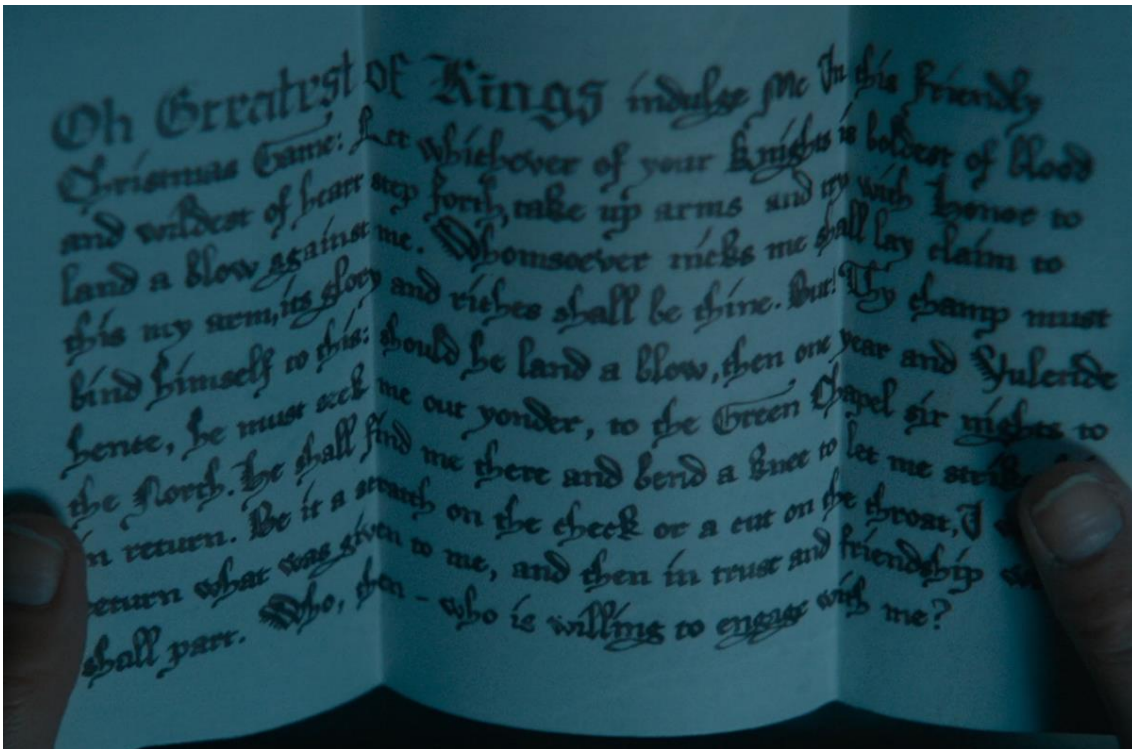 Oh Greatest of Kings indulge Me In this Friendly
Christmas Game: Let Whichever of your Knights is boldest of blood
and wildest of heart step forth, take up arms and try with Honor to
land a blow against me. Whomsoever nicks me shall lay claim to
this my arm, its glory and riches shall be thine. But! Thy champ must
bind himself to this: should he land a blow, then one year and Yuletide
hence, he must seek me out yonder, to the Green Chapel six nights to
the North. He shall find me there and bend a knee to let me strike
in return. Be it a scratch on the cheek or a cut on the throat, I
return what was given to me, and then in trust and friendship
shall part. Who, then - who is willing to engage with me?